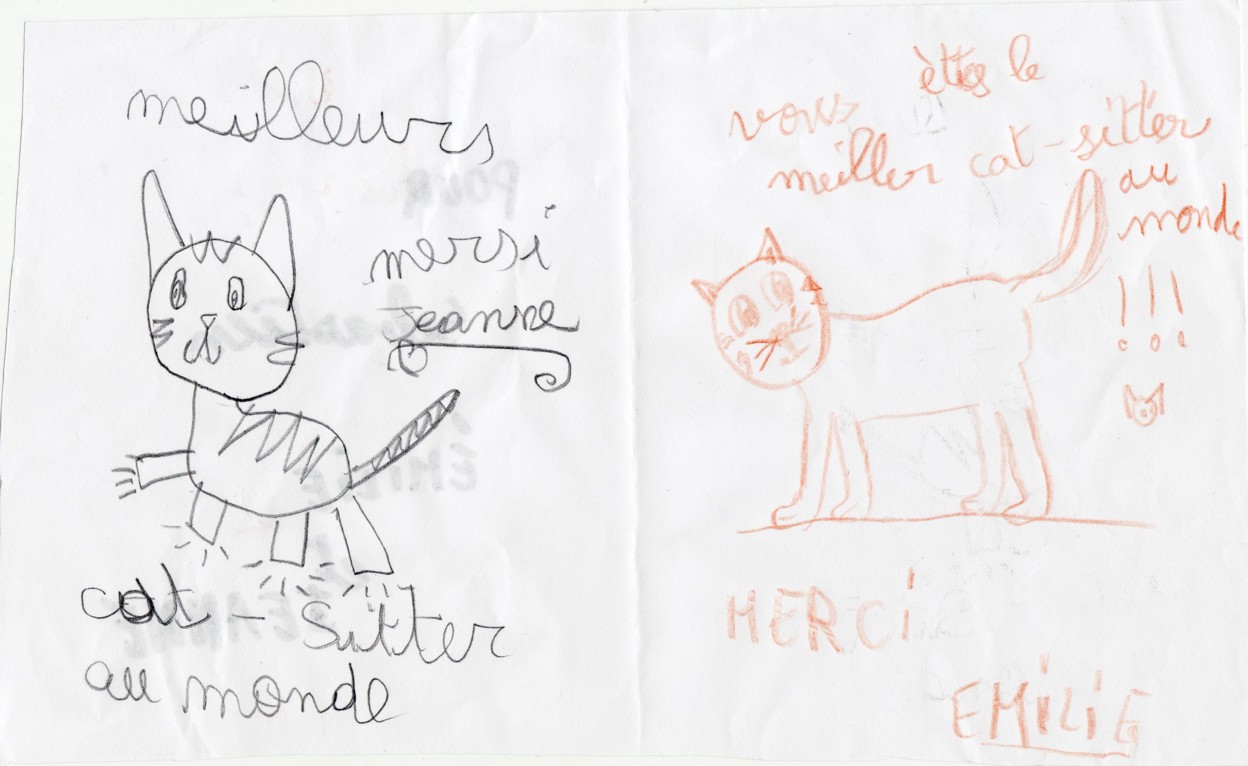 meilleurs
mersi
Jeanne
cat-Sitter
au monde
vous êttes le
meiller cat-sitter
au
monde
!!!
MERCi
EMiLiE